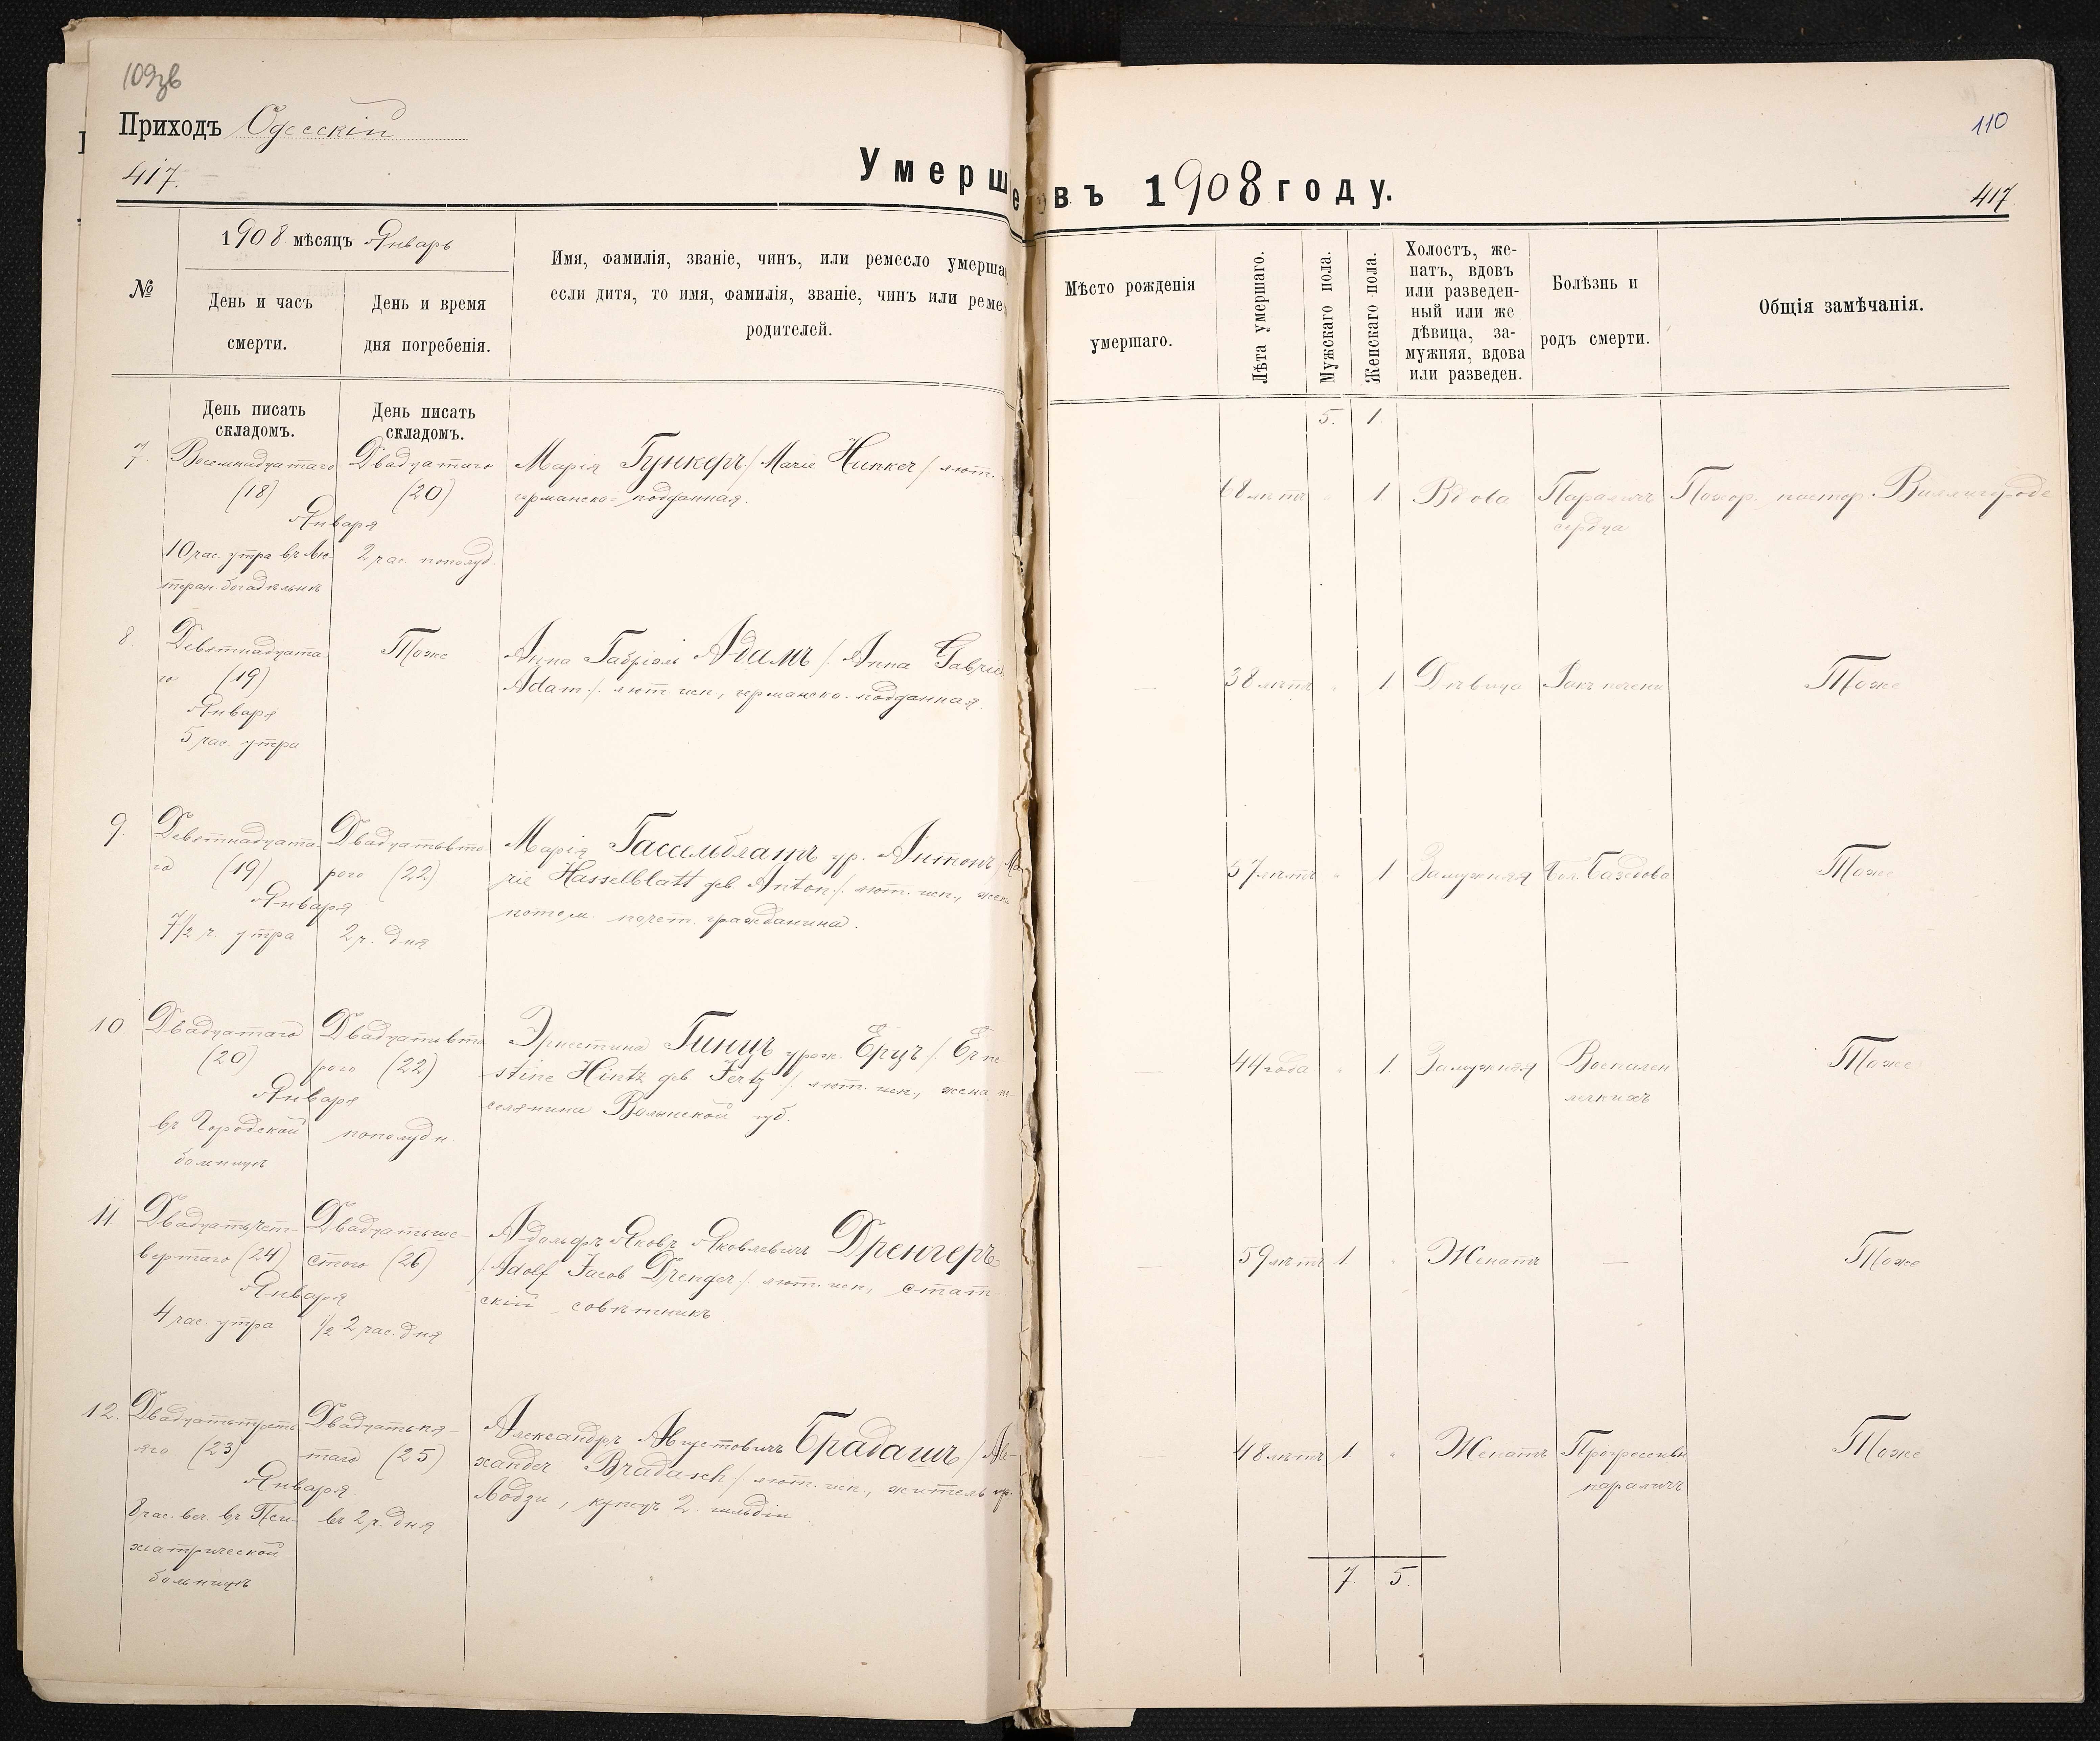 109зв
Приходъ Одесскій
417.
Умерше
№
1908 мѣсяцъ Январь
День и часъ
смерти.
День и время
дня погребенія.
Имя, фамилія, званіе, чинъ, или ремесло умерша
если дитя, то имя, фамилія, званіе, чинъ или реме
родителей.
День писать
складомъ.
День писать
складомъ.
7.
Восемнадцатаго
(18)
Января
10 час. утра въ Лю-
теран. богадѣльнѣ
Двадцатаго
(20)
2 час. пополуд.
Марія Гункеръ /: Marie Hunker :/ лют.
германско-подданная.
8.
Девятнадцата-
го (19)
Января
5 час. утра
Тоже
Анна Габріэль Адамъ /: Anna Gabrie
Adam :/ лют. исп., германско-подданная.
9.
Девятнадцата
го (19)
Января
7½ ч. утра
Двадцатьвто-
рого (22)
2 ч. дня
Марія Гассельблатъ ур. Антонъ /: Ma
rie Hasselblatt geb. Anton :/ лют. исп., жена
потом. почет. гражданина.
10.
Двадцатаго
(20)
Января
въ Городской
больницѣ
Двадцатьвто
рого (22)
пополудн.
Эрнестина Гинцъ урож. Ерцъ /: Erne-
stine Hintz geb Jertz :/ лют. исп., жена по-
селянина Волынской губ.
11.
Двадцатьчет-
вертаго (24)
Января
4 час. утра
Двадцатьше-
стого (26)
½ 2 час. дня
Адольфъ Яковъ Яковлевичъ Дренгеръ
/: Adolf Jacob Drenger :/ лют. исп., стат-
скій совѣтникъ
12.
Двадцатьтреть
яго (23)
Января
8 час. веч. въ Пси-
хіатрической
больницѣ
Двадцатьпя-
таго (25)
въ 2 ч. дня
Александръ Августовичъ Брадашъ /: Ale-
xander Bradasch :/ лют. исп., житель гор.
Лодзи, купецъ 2. гильдіи.
110
въ 1908 году.
417
Мѣсто рожденія
умершаго.
Лѣта умершаго.
Мужскаго пола.
Женскаго пола.
Холостъ, же-
натъ, вдовъ
или разведен-
ный или же
дѣвица, за-
мужняя, вдова
или разведен.
Болѣзнь и
родъ смерти.
Общія замѣчанія.
5. 1.
68 лѣтъ " 1 Вдова Параличъ
сердца
Похор. пастор.
— 38 лѣтъ " 1 Дѣвица Ракъ печени Тоже
57 лѣтъ " 1 Замужняя Бол. Базедова Тоже
— 44 года " 1 Замужняя Воспален
легкихъ
Тоже
— 59 лѣтъ 1. " Женатъ — Тоже
48 лѣтъ 1. " Женатъ Прогрессивн
параличъ
Тоже
7 5.